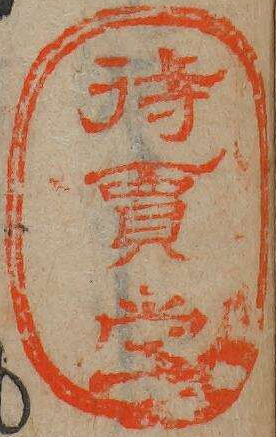 待賈堂